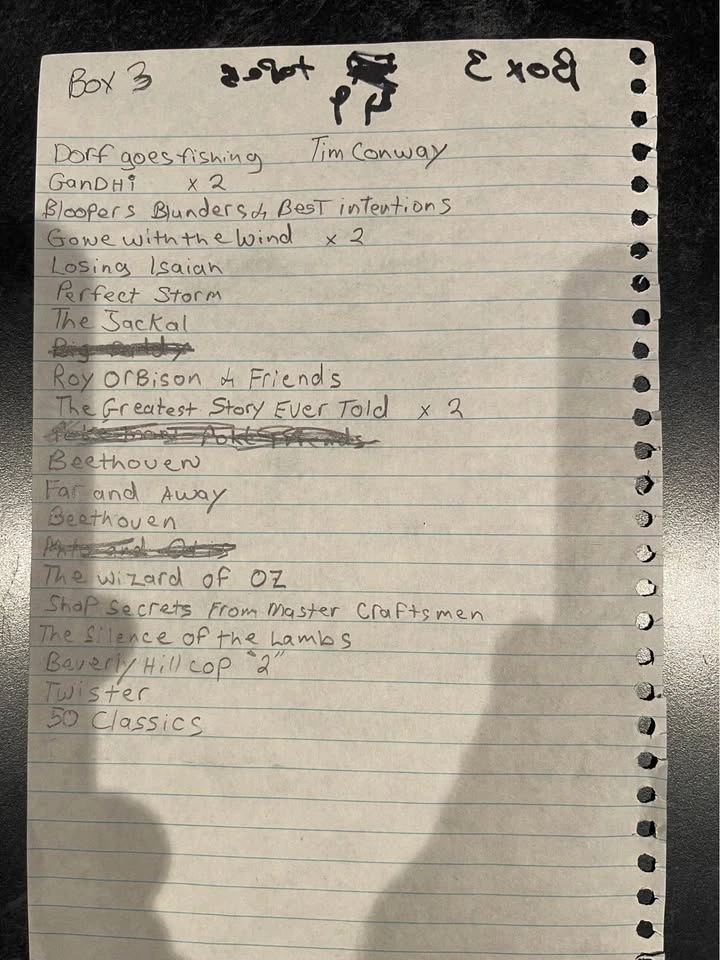 Box 3
Box 3 tapes
49
Dorf goes fishing Tim Conway
GanDHi x 2
Bloopers Blunders & BesT intentions
Gowe with the Wind x 2
Losing Isaiah
Perfect Storm
The Jackal
Big Daddy
Roy OrBison & Friends
The Greatest Story Ever Told x 2
Beethoven
Far and Away
Beethoven
The wizard of OZ
Shop Secrets From Master Craftsmen
The Silence of the Lambs
Baverly Hill cop "2"
Twister
50 Classics